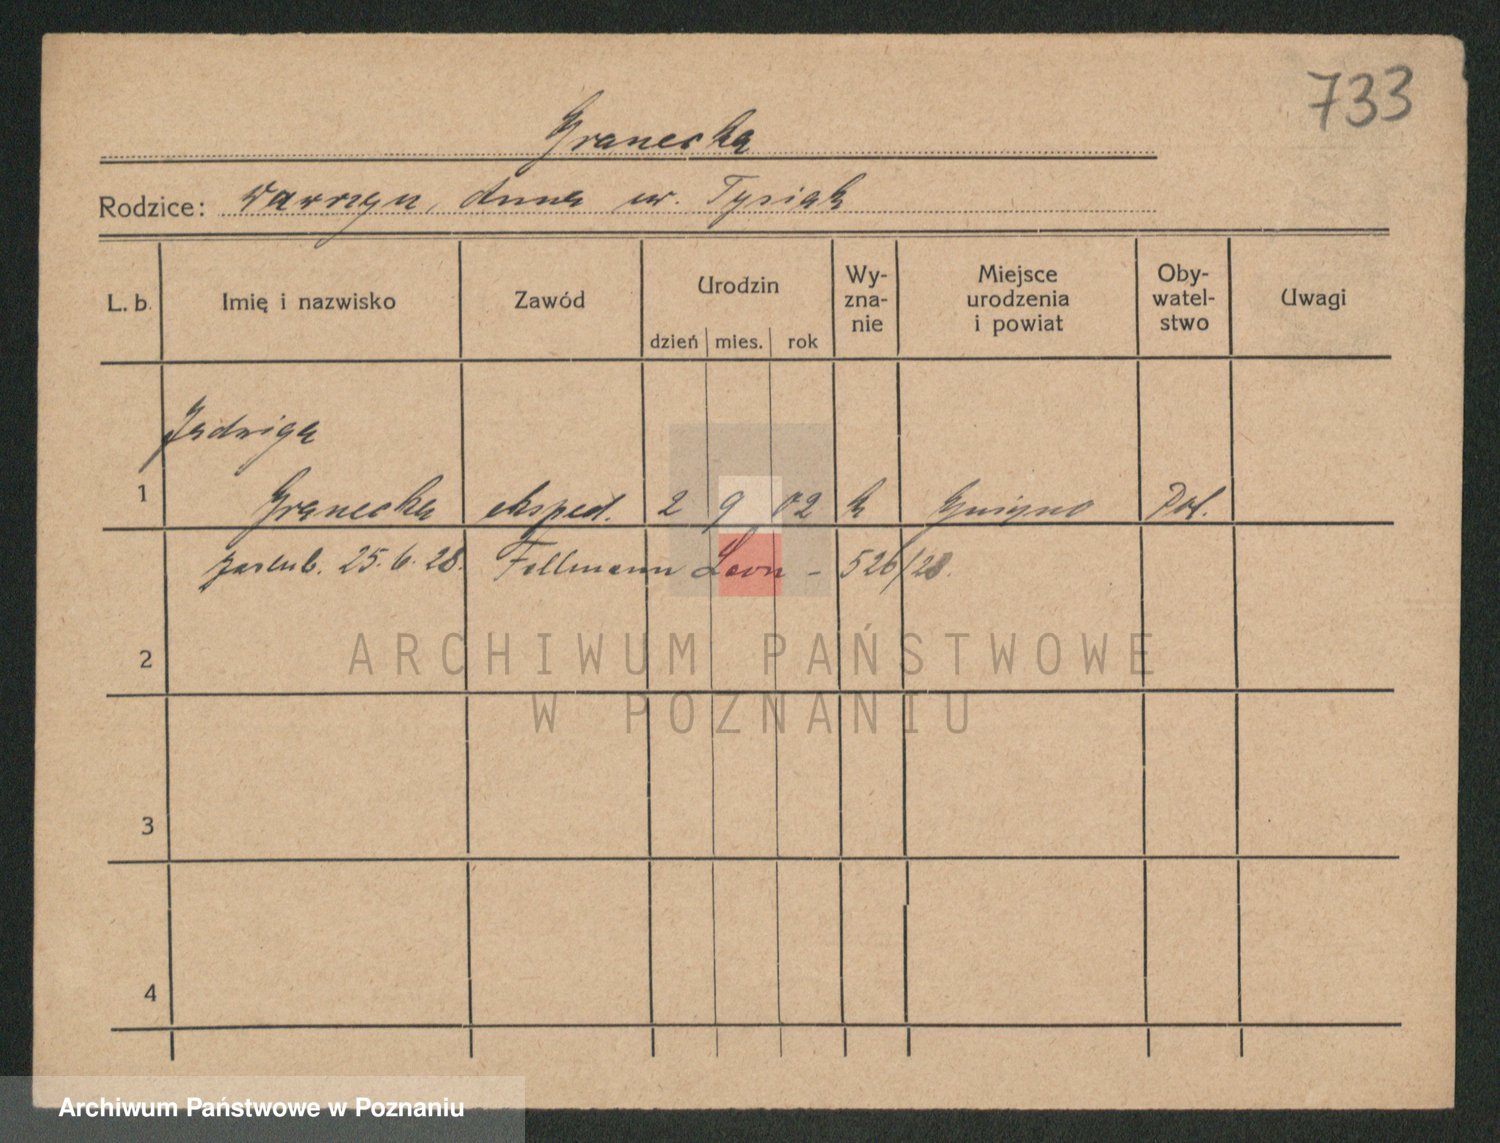 733
Granecka
Rodzice: Wawrzyn, Anna ur. Tysiak
L. b. Imię i nazwisko Zawód Urodzin dzień mies. rok Wy- zna- nie Miejsce urodzenia i powiat Oby- watel- stwo Uwagi
Jadwiga
1 Granecka eksped. 2 9 02 k Pol.
zaślub. 25. 6. 28. Fellmann Leon – 526/28.
2
ARCHIWUM PAŃSTWOWE
W POZNANIU
3
4
Archiwum Państwowe w Poznaniu